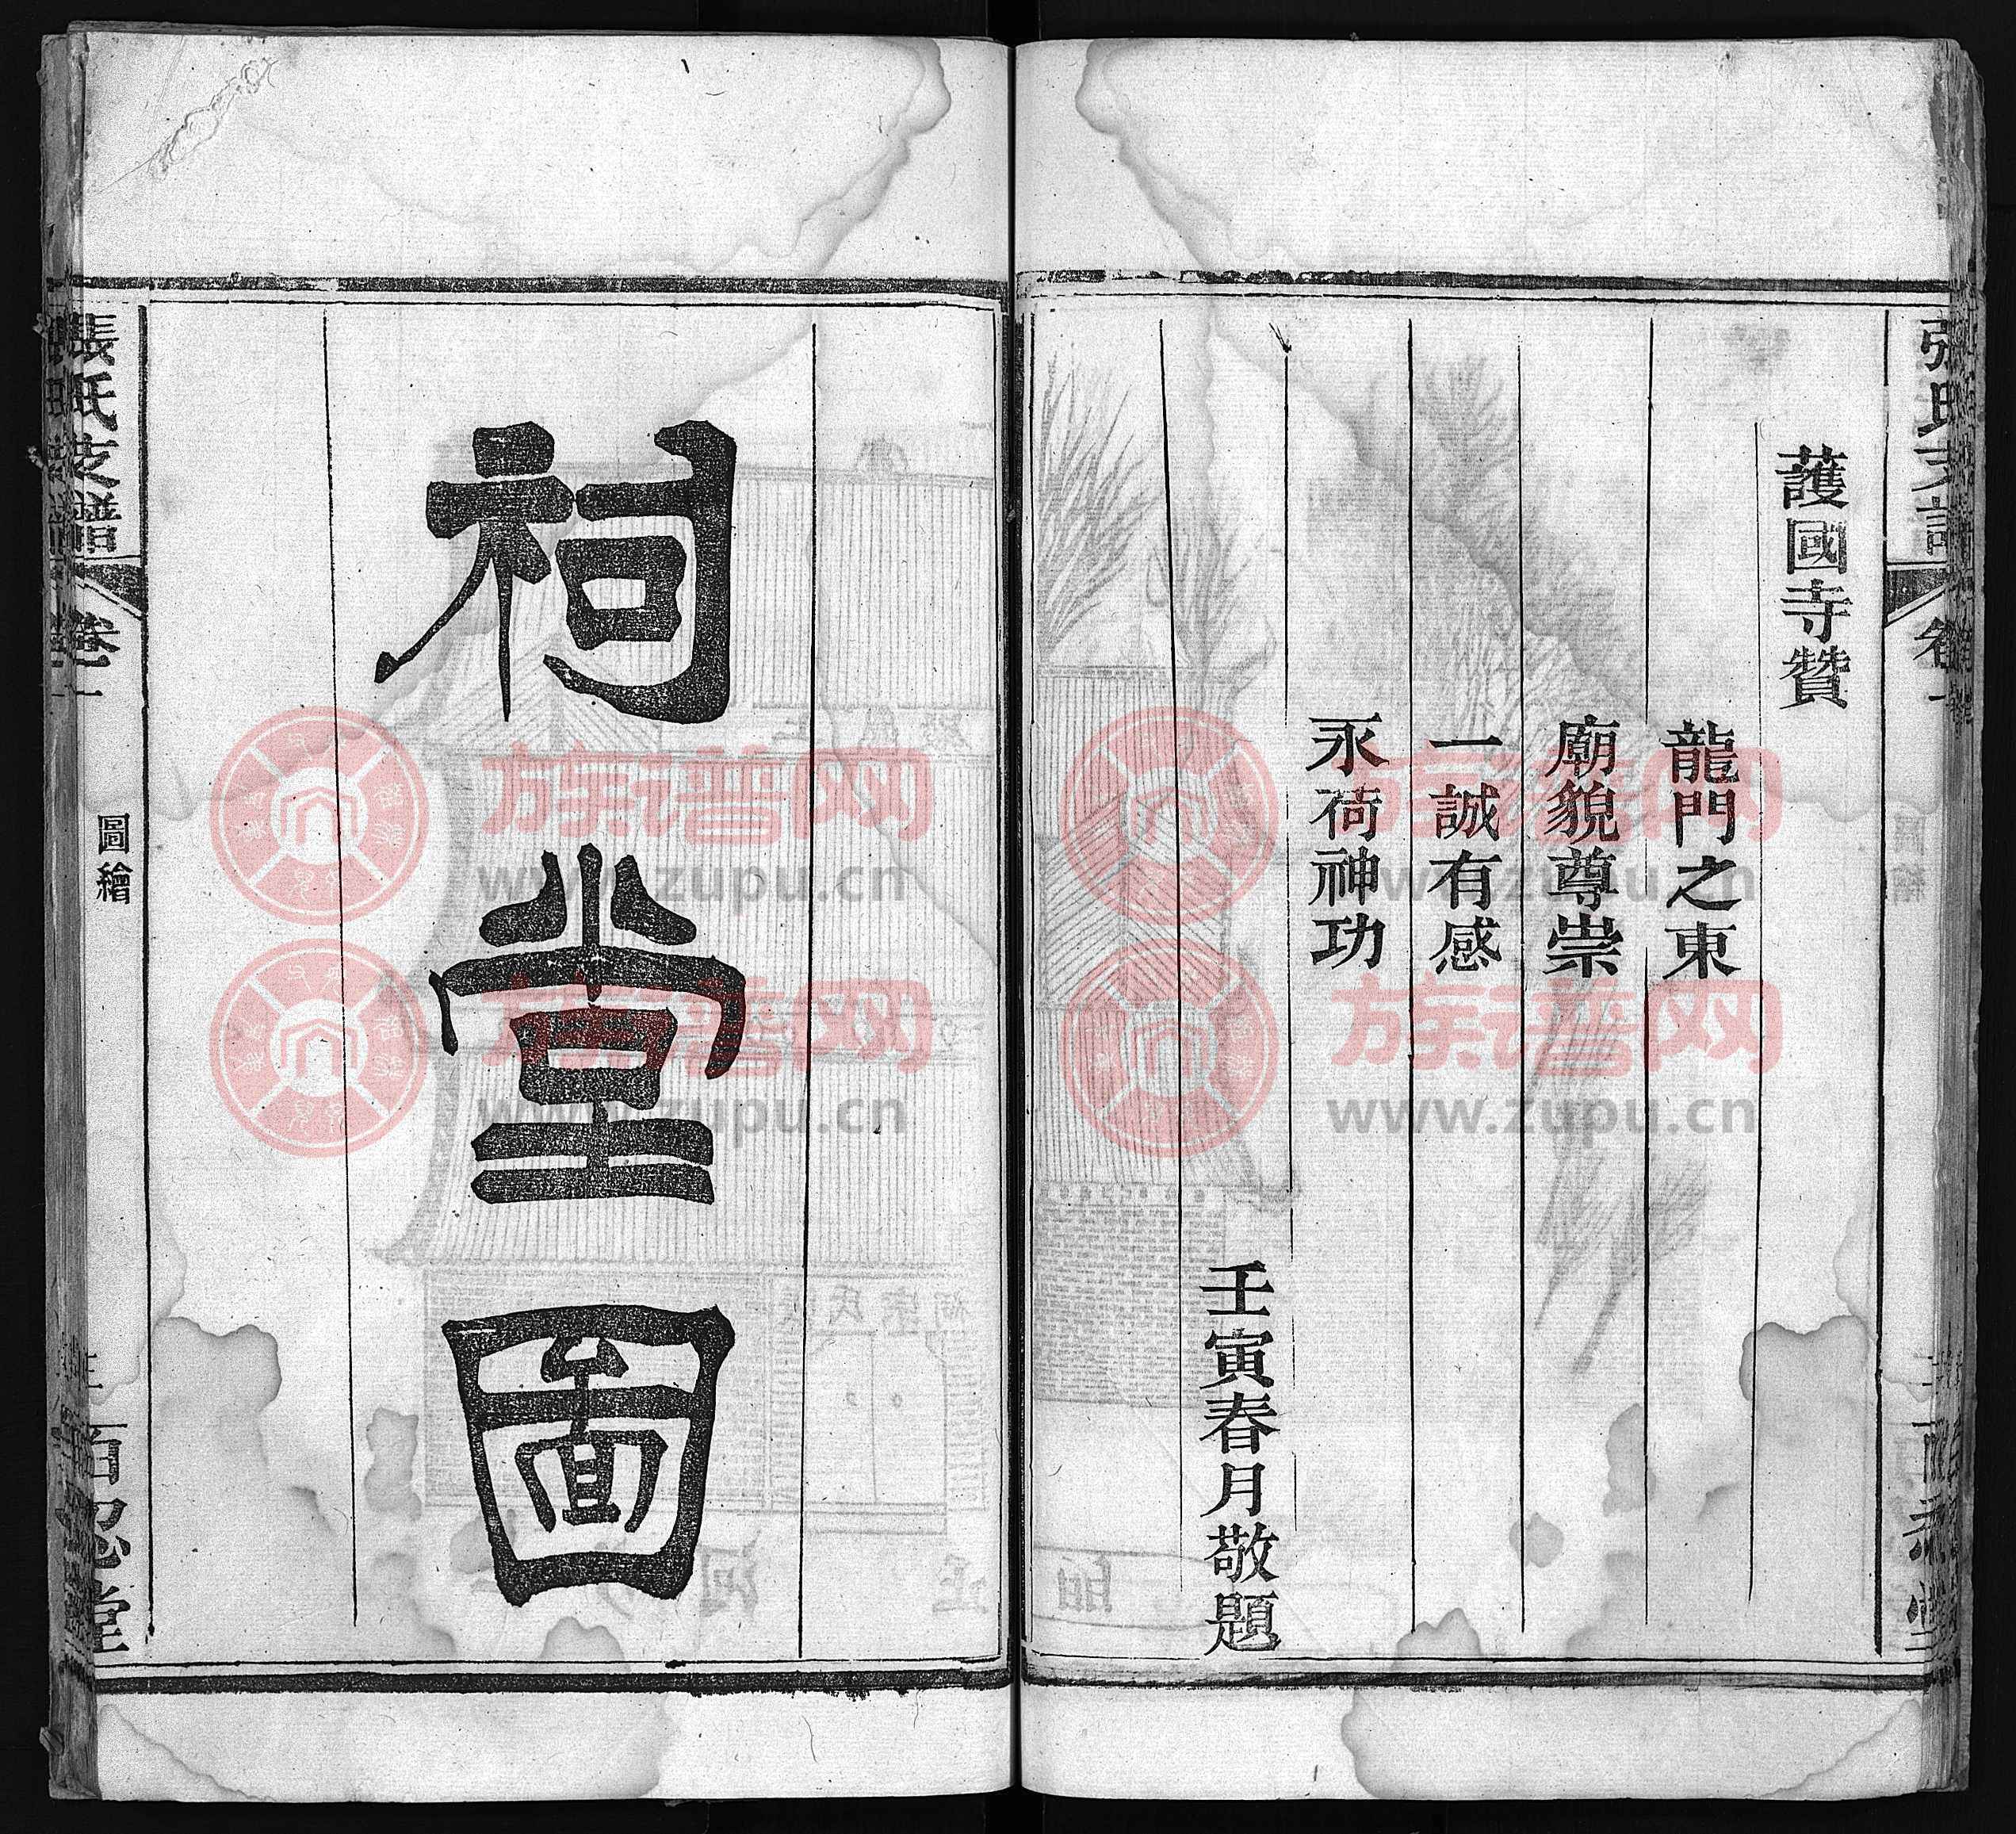 護國寺贊
龍門之東
廟貌尊崇
一誠有感
永荷神功
壬寅春月敬題
祠堂圖
張氏支譜
卷一
圖繪
百忍堂
族谱网
www.zupu.cn
族谱网
www.zupu.cn
族谱网
www.zupu.cn
族谱网
www.zupu.cn